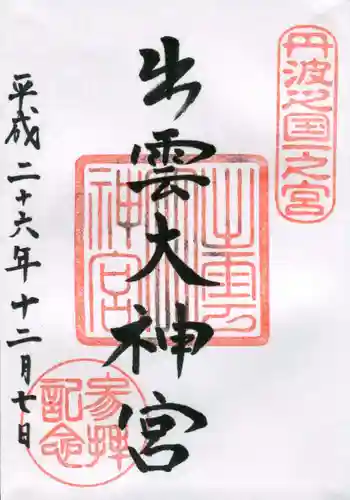 丹波之国一之宮
出雲大神宮
平成二十六年十二月七日
参拝
記念